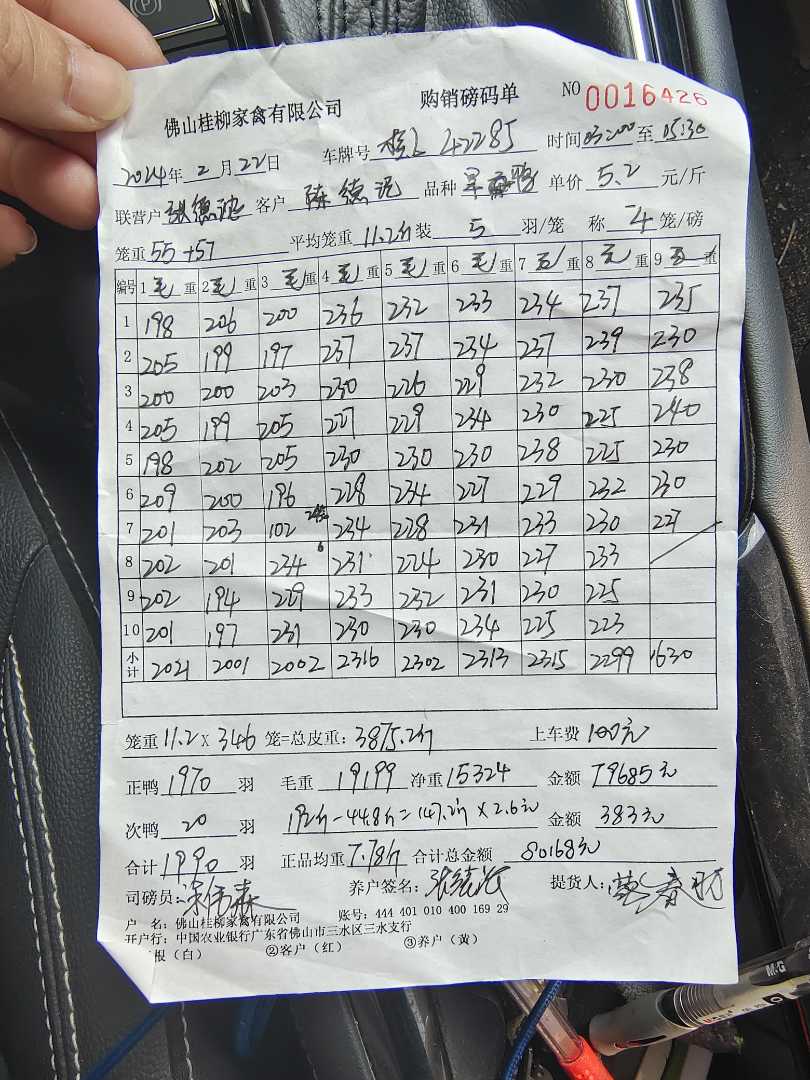 佛山桂柳家禽有限公司 购销磅码单 NO 0016426
2024年 2月22日 车牌号 42285 时间03:00至05:30
联营户 张德 客户 陈德 品种 单价 5.2 元/斤
笼重 55+57 平均笼重 11.2斤 装 5 羽/笼 称 4 笼/磅
编号 1 毛重 2 毛重 3 毛重 4 毛重 5 毛重 6 毛重 7 毛重 8 毛重 9 毛重
1 198 206 200 236 232 233 234 237 235
2 205 199 197 237 237 234 237 239 230
3 200 200 203 230 226 229 232 230 238
4 205 199 205 227 229 234 230 225 240
5 198 202 205 230 230 230 238 225 230
6 209 200 196 228 234 227 229 232 230
7 201 203 102 234 228 231 233 230 227
8 202 201 234 6 231 224 230 227 233
9 202 194 229 233 232 231 230 225
10 201 197 231 230 230 234 225 223
小计 2021 2001 2002 2316 2302 2313 2315 2299 1630
笼重 11.2 X 346 笼=总皮重: 3875.2斤 上车费 100元
正鸭 1970 羽 毛重 19199 净重 15324 金额 79685元
次鸭 20 羽 192斤-44.8斤=147.2斤×2.6元 金额 383元
合计 1990 羽 正品均重 7.78斤 合计总金额 80168元
司磅员: 养户签名: 提货人:
户 名: 佛山桂柳家禽有限公司 账号: 444 401 010 400 169 29
开户行: 中国农业银行广东省佛山市三水区三水支行
根（白） ②客户（红） ③养户（黄）
M&G